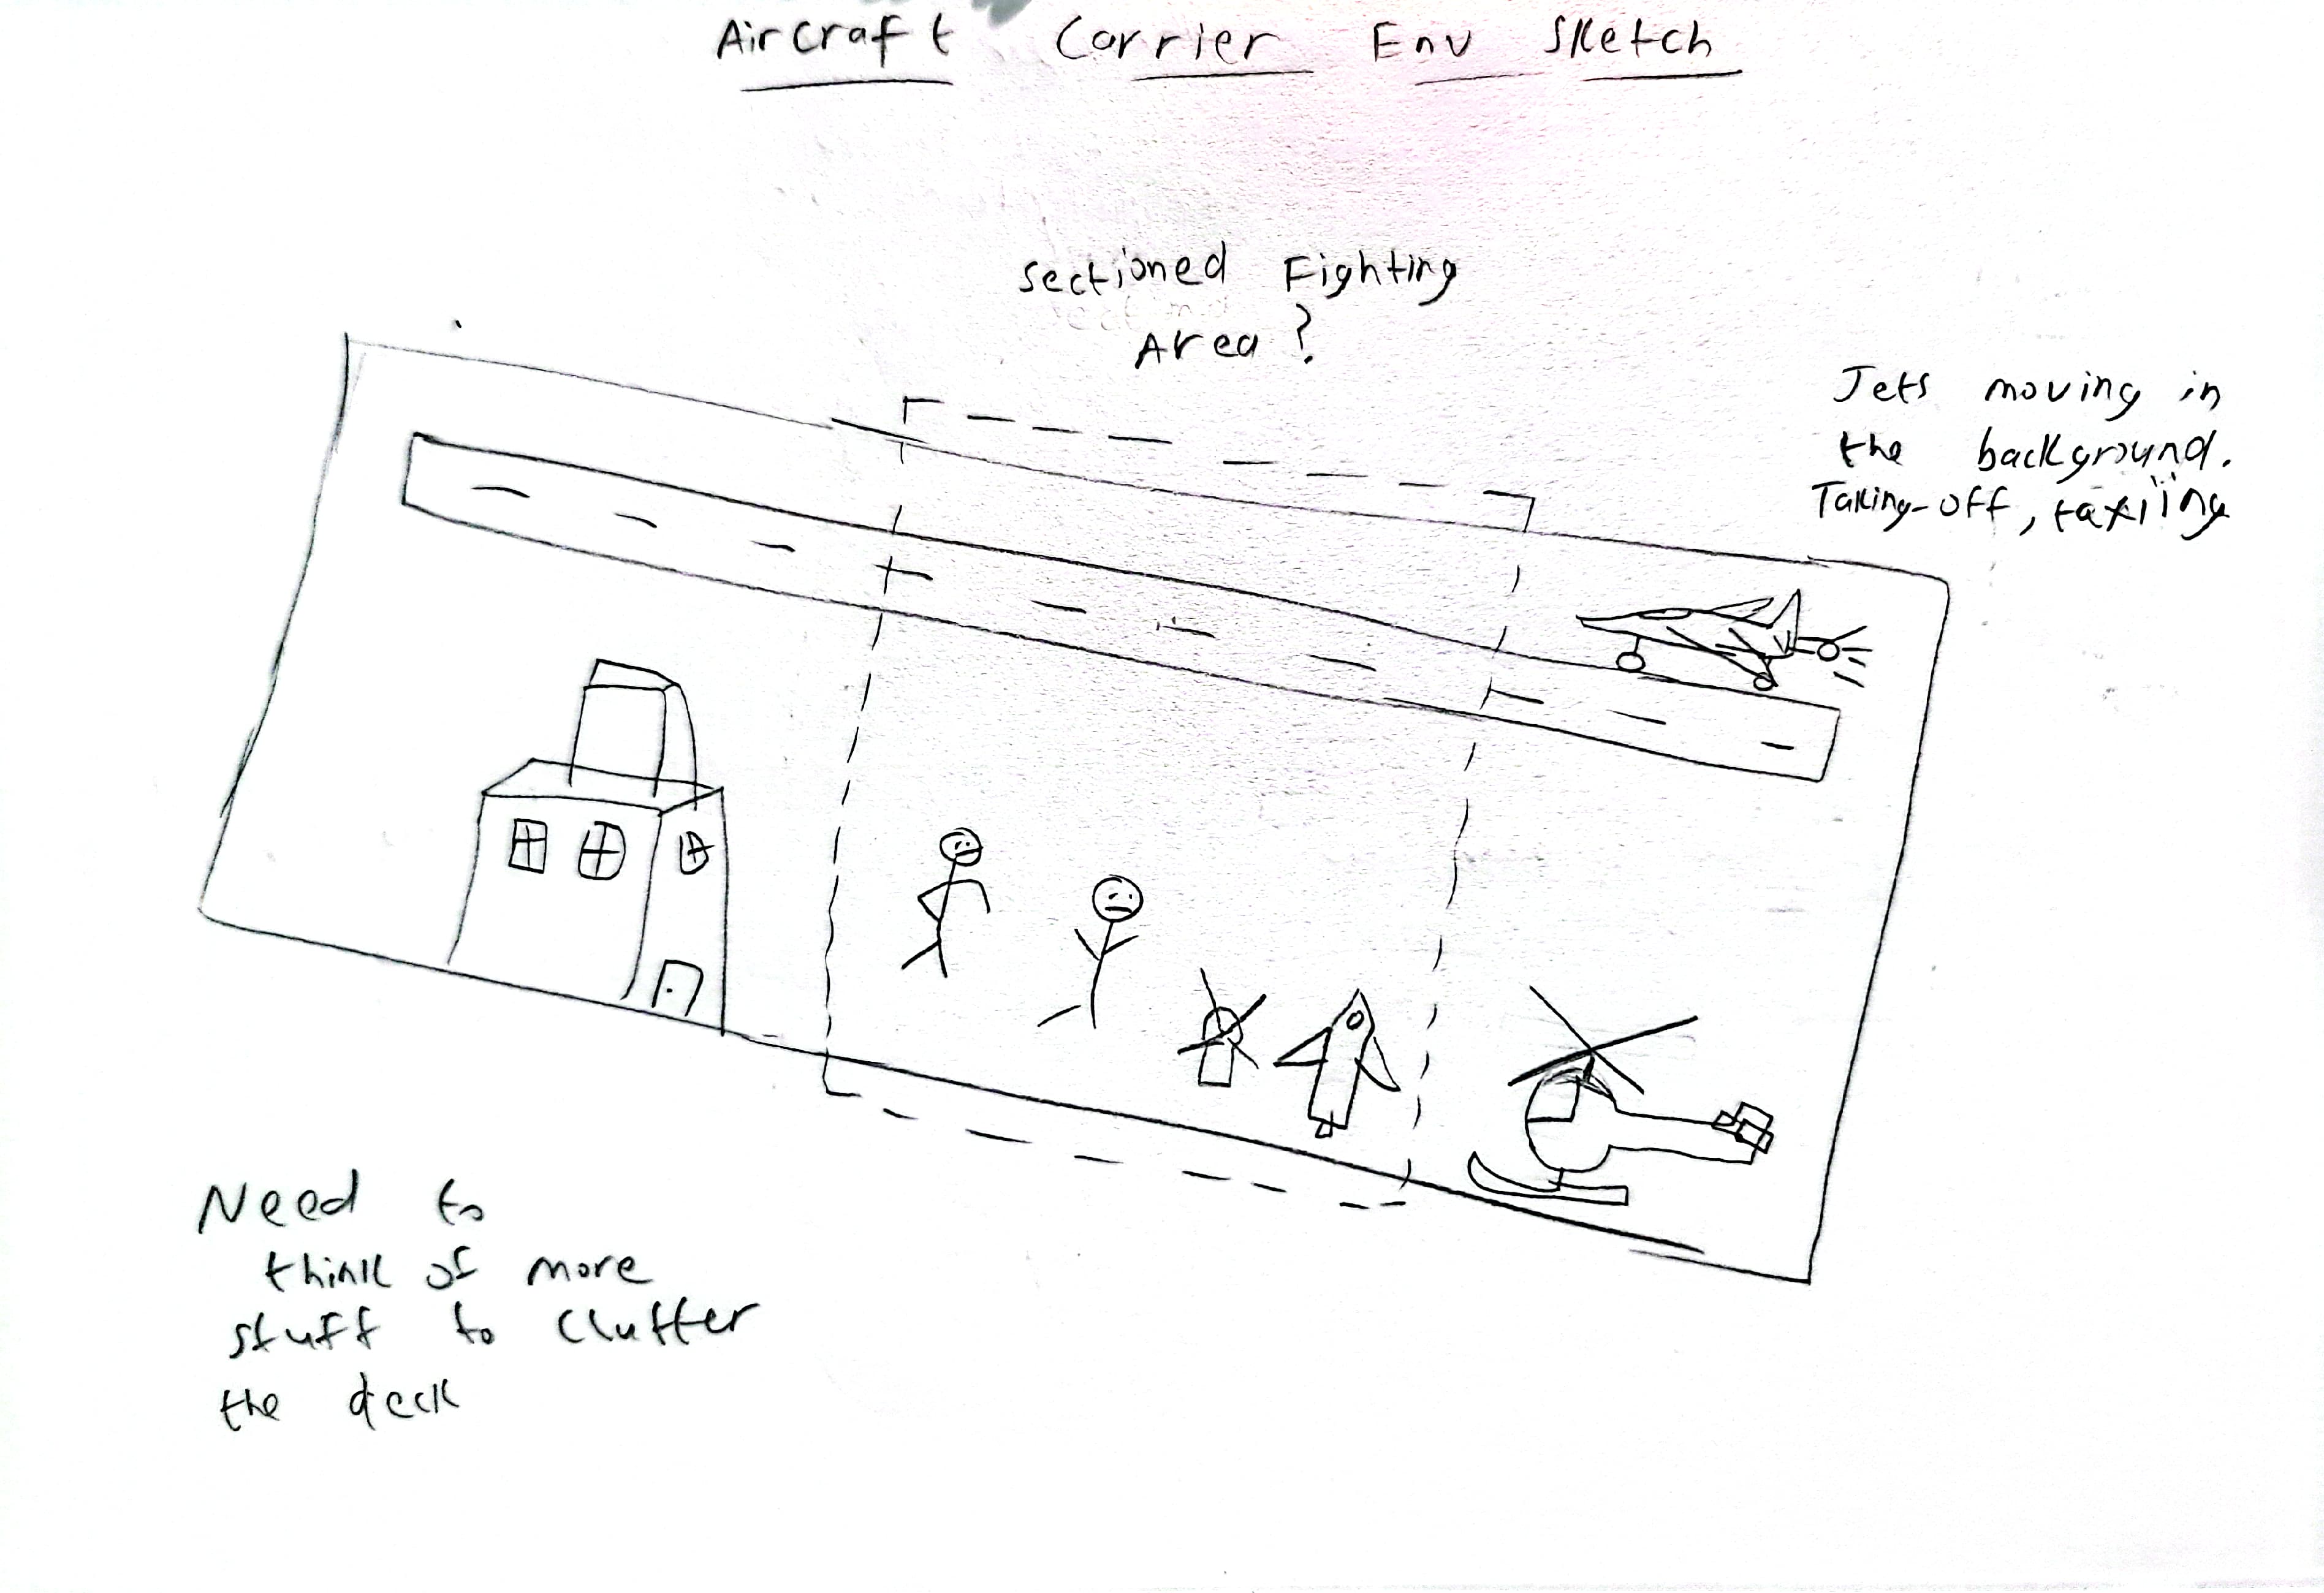 Aircraft Carrier Env Sketch
Sectioned Fighting
Area?
Jets moving in
the background.
Taking-off, taxiing
Need to
think of more
stuff to clutter
the deck